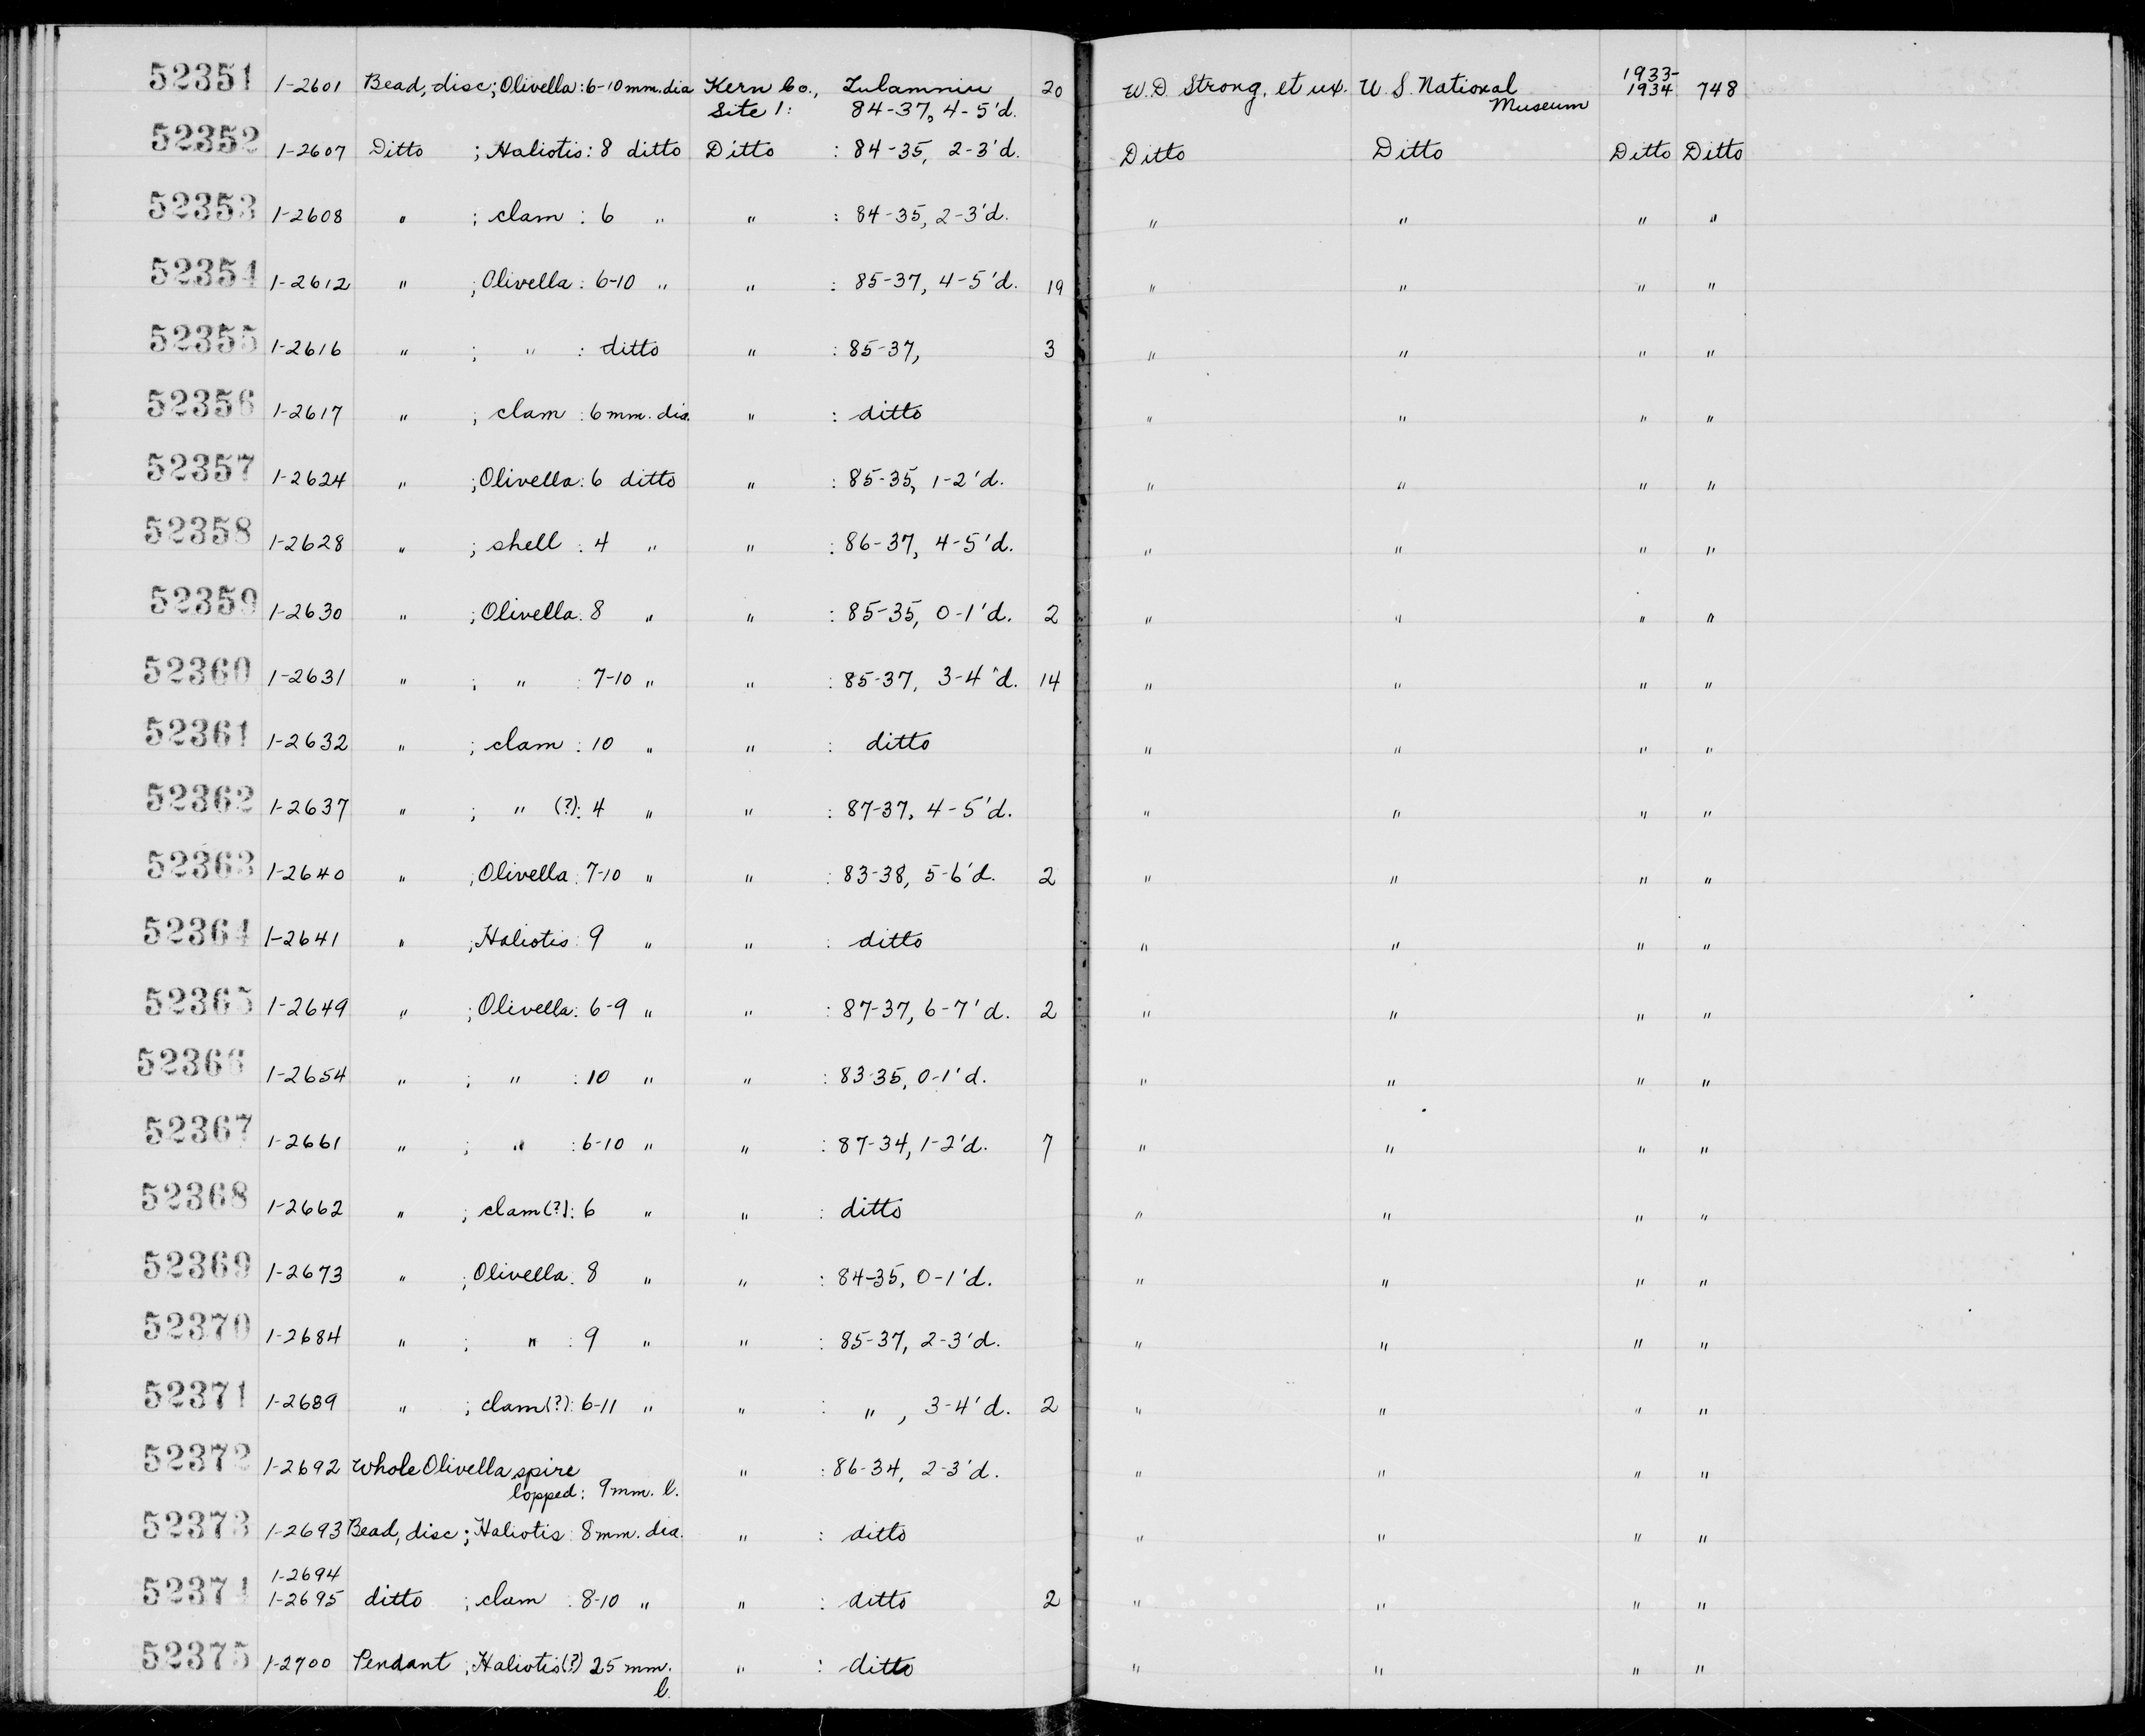 52351 1-2601 Bead, disc; Olivella: 6-10 mm. dia Kern Co., Tulamniu 20 W. D. Strong, et ux. U. S. National 1933- 748
Site 1: 84-37, 4-5'd. Museum 1934
52352 1-2607 Ditto ; Haliotis: 8 ditto Ditto : 84-35, 2-3'd. Ditto Ditto Ditto Ditto
52353 1-2608 " ; clam : 6 " " : 84-35, 2-3'd. " " " "
52354 1-2612 " ; Olivella : 6-10 " " : 85-37, 4-5'd. 19 " " " "
52355 1-2616 " ; " : ditto " : 85-37, 3 " " " "
52356 1-2617 " ; clam : 6 mm. dia. " : ditto " " " "
52357 1-2624 " ; Olivella: 6 ditto " : 85-35, 1-2'd. " " " "
52358 1-2628 " ; shell : 4 " " : 86-37, 4-5'd. " " " "
52359 1-2630 " ; Olivella: 8 " " : 85-35, 0-1'd. 2 " " " "
52360 1-2631 " ; " : 7-10 " " : 85-37, 3-4'd. 14 " " " "
52361 1-2632 " ; clam : 10 " " : ditto " " " "
52362 1-2637 " ; " (?): 4 " " : 87-37, 4-5'd. " " " "
52363 1-2640 " ; Olivella: 7-10 " " : 83-38, 5-6'd. 2 " " " "
52364 1-2641 " ; Haliotis: 9 " " : ditto " " " "
52365 1-2649 " ; Olivella: 6-9 " " : 87-37, 6-7'd. 2 " " " "
52366 1-2654 " ; " : 10 " " : 83-35, 0-1'd. " " " "
52367 1-2661 " ; " : 6-10 " " : 87-34, 1-2'd. 7 " " " "
52368 1-2662 " ; clam(?): 6 " " : ditto " " " "
52369 1-2673 " ; Olivella: 8 " " : 84-35, 0-1'd. " " " "
52370 1-2684 " ; " : 9 " " : 85-37, 2-3'd. " " " "
52371 1-2689 " ; clam(?): 6-11 " " : " , 3-4'd. 2 " " " "
52372 1-2692 Whole Olivella, spire " : 86-34, 2-3'd. " " " "
lopped: 9 mm. l.
52373 1-2693 Bead, disc; Haliotis: 8 mm. dia. " : ditto " " " "
1-2694
52374 1-2695 ditto ; clam : 8-10 " " : ditto 2 " " " "
52375 1-2700 Pendant ; Haliotis(?) 25 mm. " : ditto " " " "
l.